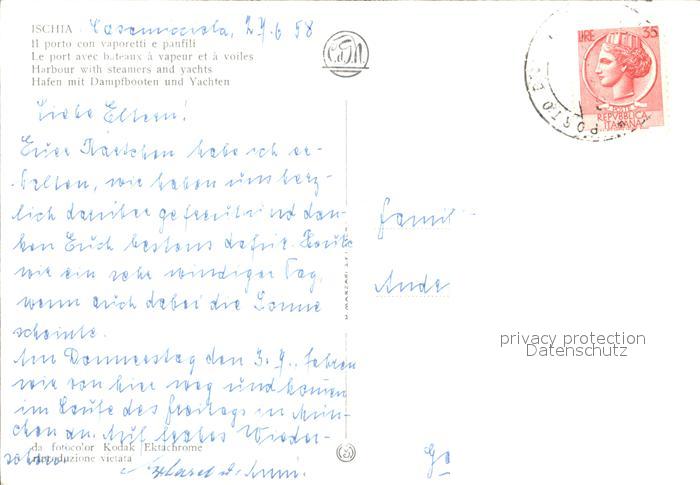 ISCHIA Casamicciola, 29.6 58
Il porto con vaporetti e panfili
Le port avec bateaux à vapeur et à voiles
Harbour with steamers and yachts
Hafen mit Dampfbooten und Yachten
Liebe Eltern!
Euer Kärtchen habe ich er-
halten, wir haben uns herz-
lich darüber gefreut und dan-
ken Euch bestens dafür. Heute
war ein sehr windiger Tag,
wenn auch dabei die Sonne
scheinte.
Am Donnerstag den 3.7. fahren
wir von hier weg und kommen
im Laufe des Freitags in Mün-
chen an. Auf liebes Wieder-
sehen
da fotocolor Kodak Ektachrome
riproduzione vietata
Famil
Ande
LIRE 35
POSTE
REPVBBLICA
ITALIANA
privacy protection
Datenschutz